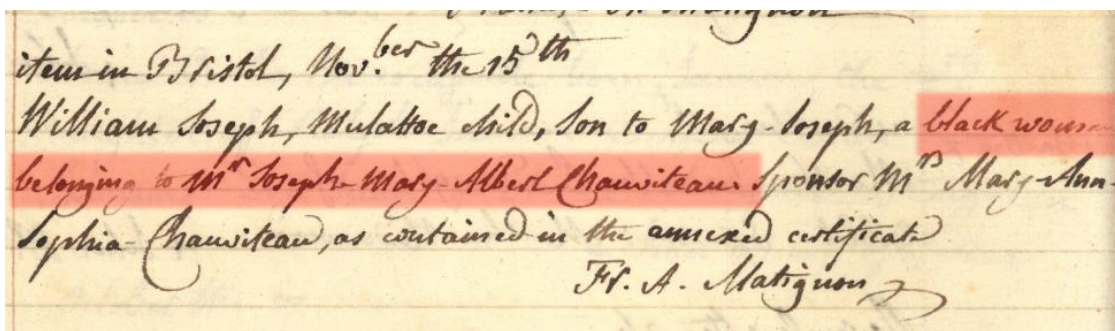 Fr. A. Matignon
item in Bristol, Nov.ber the 15th
William Joseph, Mulattoe child, Son to Mary-Joseph, a black woman
belonging to Mr Joseph-Mary-Albert Chauviteau. Sponsor Mrs Mary-Ann-
Sophia-Chauviteau, as contained in the annexed certificate
Fr. A. Matignon